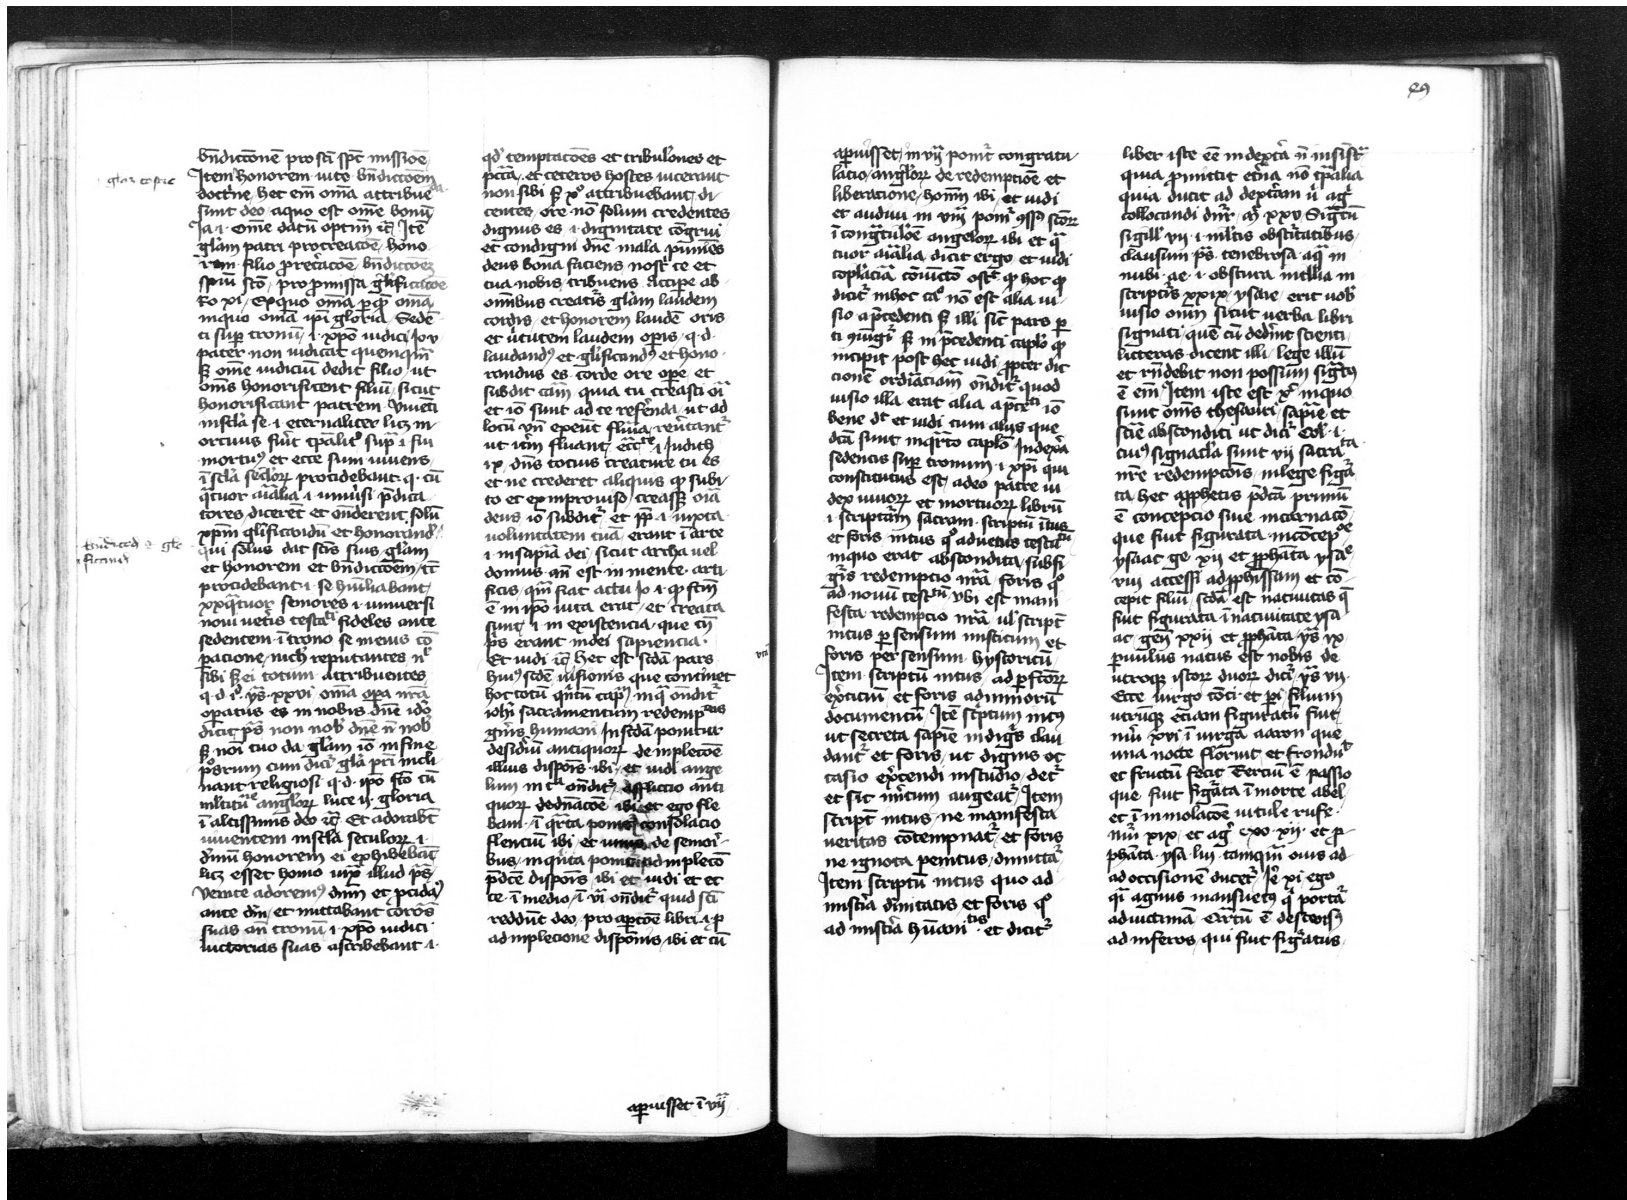 bn̄dicc̄onē pro sc̄i sp̄c missioē
Item honorem vite bn̄dicc̄oēm
doctrīe, hec em̄ om̄ia attribuēda
sunt deo, a quo est om̄e bonū
Ja i · Om̄e datū optim̄ ⁊c̄ Itē
gl̄am patri pro creac̄oē, hono
rem filio pro rec̄reac̄oē, bn̄dicc̄oēz
spūi sc̄o, pro promissa gl̄ificac̄oe
Ro xi, Ex quo om̄ia per quē om̄ia
in quo om̄ia ipī gloria, Sedē
ti sup̄ tronū · i · xp̄o iudici Jo v
pater non iudicat quemq̄m
sꝫ om̄e iudiciū dedit filio, ut
om̄s honorificent filiū, sicut
honorificant patrem, Viuēti
in sc̄la sc̄ · i · eternaliter licꝫ m
ortuus fuīt tp̄alit̄ sup̄ i · fui
mortuꝰ et ecce sum viuens,
ī sc̄la sc̄lorꝝ procidebant · q · cū
q̄tuor aīalia · i · vniūsi p̄dica
tores, dicerēt et on̄derent, solū
xp̄m glificandū et honorandū
qui solus dat sc̄is suis gl̄am
et honorem et bn̄dicc̄oēm, ⁊c̄
procidebant · i · se hūiliabant,
xxq̄tuor seniores · i · vniuersi
noui vet̄is testa fideles ante
sedentem ī trono, se in eius cō
pacione, nich̄ reputantes nl̄
sibi sꝫ ei totum attribuentes
q · d · iƚƚ ys · xxvi om̄ia op̄a nr̄a
op̄atus es in nobis dn̄e idō
dicit p̄s non nob̄ dn̄e n̄ nob̄
sꝫ noī tuo da gl̄am iō in fine
p̄s̄orum cum dicit̄ gl̄a pr̄i incli
nant religiosi · q · d · ipō fc̄o cū
ml̄titūe angl̄orꝝ luce ii · gloria
ī altissimis deo ⁊c̄ · Et adorab̄t
viuentem in sc̄la seculorꝝ · i ·
diuinū honorem ei exhibebāt
licꝫ esset homo iuxͣ illud p̄s,
venite adoremꝰ dn̄m et p̄cidaꝰ
ante dm̄, et mittebant coronᷤ
suas an̄ tronū · i · xp̄o iudici
victorias suas ascribebant · i ·
qd̄ temptac̄oēs et tribul̄ones et
pctā, et ceteros hostes vicerant
non sibi sꝫ xp̄o attribuebant, di
centes, ore nō solum credentes
dignus es · i · dignitate cōgrui
et condigni dn̄e mala puniēs
deus bona faciens nostr̄ te et
tua nobis tribuens, Accipe ab
om̄ibus creatis gl̄am laudem
cordis, et honorem laudē oris
et v̄tutem laudem op̄is · q · d ·
laudandꝰ et gl̄ificandꝰ et hono
randus es corde ore op̄e, et
subdit cām quia tu creasti oīa
et iō sunt ad te referēda, ut ad
locū vn̄ exeūt flūia, reūtant̄
ut it̄m fluant, ecc̄ i Judith
ix, dn̄s totius creature tu es
et ne crederet aliquis ꝙ subi
to et ex improuiso creass̄ oīa
deus iō subdit̄, et p̄p̄ · i · iuxta
voluntatem tuā erant ī arte
· i · in sapīa dei, sicut archa vel
domus an̄ est in mente arti
ficis, q̄m fiat actu Jo i · ꝙ fc̄m
ē in ipo vita erat, et creata
sunt · i · in existencia, que cū
p̄s erant in dei sapiencia ·
Et vidi ⁊c̄ Hec est sc̄da pars
huiꝰ sc̄de visionis que continet
hoc totū qn̄tū cap̄m, in q̄ on̄dit̄
iohī sacramentum redemp̄c̄ois
gn̄is humani, In sc̄da ponitur
desid̄iū antiquorꝝ de implec̄oē
illius dispōis ibi, et vidi ange
lum in tͥa on̄dit̄, afflictio anti
quorꝝ de dn̄acōe ibi et ego fle
bam · ī q̄rta ponit̄ consolacio
flencium ibi et vnus de senior̄
bus, in q̄nta ponit̄ ad implec̄o
p̄dc̄e dispōis ibi et vidi et ec
ce · ī medio, ī vi on̄dit̄ quid sc̄i
reddūt deo, pro ap̄c̄oē libri, i · p̄
ad implecione disp̄onis, ibi et cū
ap̄uisset ī vij
gl̄az cōpic
bn̄dicendū ⁊ gl̄i
ficandū
vtū
89
ap̄uisset, in vij ponit̄ congratu
lacio, angl̄orꝝ de redempcioē et
liberacione, hom̄m ibi, et vidi
et audiui in viij ponit̄ ꝯss̄ꝰ sc̄orꝝ
ī congͣtul̄oē angelorꝝ ibi et q̄
tuor aīalia, dicit ergo, et vidi
cop̄laciā cōiūctō ost̄ ꝙ hoc ꝙ
dicit̄ in hoc cao nō est alia vi
sio a p̄cedenti sꝫ illi sic̄ pars p̄
ti ꝯiūgit̄ sꝫ in p̄cedenti cap̄lo ꝙ
incipit post hec vidi propter dic
cionē ordīaciaꝫ on̄dit̄ quod
visio illa erat alia a p̄cēti iō
bene dt̄ et vidi cum alijs que
dc̄a sunt in q̄rto cap̄lo, In dext̄a
sedentis sup̄ tronum · i · xp̄i qui
constitutus est, a deo patre iu
dex viuorꝝ et mortuorꝝ librū
· i · scripturā sacram, scriptū ītus
et foris, intus qͦ ad vetus testam̄tū
in quo erat abscondita, sub fi
gͥs redempcio nr̄a, foris qͦ
ad nouū testm̄tū vbi est mani
festa redempcio nr̄a ul̄ script̄
intus p̄ sensum misticum et
foris per sensum hystoricū,
Item scriptū intus, ad p̄fc̄orꝝ
ex̄ciciū et foris ad minorū
documentū, Itē sc̄ptum intꝰ
ut secreta sapīe indigͥs clau
dant̄ et foris, ut dignis oc
casio ex̄cendi in studio, det̄
et sic m̄itum augeat̄, Item
script̄ intus, ne manifesta
veritas cōtempnat̄ et foris
ne ignota penitus, dimittat̄
Item scriptū intus quo ad
mistͥia diuinitatis et foris qͦ
ad mistͥia hūani tis · et dicit̄
liber iste eē in dext̄a n̄ in sinistͣ
quia promittit et̄na nō tp̄alia
quia ducit ad dext̄am ul̄ agͥ
collocandi dn̄r, mͭ xxv Sigͣtū
sigill̄ vij · i · ml̄tis obscuritatibus,
clausum p̄s tenebrosa aqͣ in
nubi · ae · i · obscura intelliā in
scriptͥs xxix ysaie, erit vob̄
visio oīm sicut verba libri
signati, quē cū dederīt scienti
litteras dicent illi, lege illū
et rn̄debit non possum sigͣtꝰ
ē em̄ Item iste est xp̄c in quo
sunt om̄s thesauri, sapīe et
scīe absconditi ut dicit̄ Col · i ·
cuiꝰ signacl̄a sunt vij sacra
nr̄e redempcōis, in lege figͣ
ta hec a prophetis p̄dc̄a primū
ē concepcio siue incarnacō
que fuit figurata in cōcepcōe
ysaac ge · xij et p̄phata ysae
viij accessi ad prophetissam et cō
cepit filiū, sc̄da est natiuitas q̄
fuit figurata ī natiuitate ysa
ac, gen̄ xxij et p̄phata ys̄ ix
p̄uulus natus est nobis de
vtroque istorꝝ duorꝝ dicit̄ ys̄ vij,
Ecce virgo cōci · et pi · filium
vtrūqꝫ etiam figuratū fuit,
nūi xvi ī virga aaron que
vna nocte floruit, et frondūit
et fructū fecit Tercium ē passio
que fuit figͣta ī morte abel
et ī inmolacōe vitule rufe
nūi xix, et agͥ exo xij · et p̄
phata ysa · liij tamq̄m ouis ad
ad occisionē ducet̄ Jē xi ego
q̄i agnus mansuetꝰ q̄ portat̄
ad victimā Q̄rtū ē descensꝰ
ad inferos, qui fuit figͣratus,